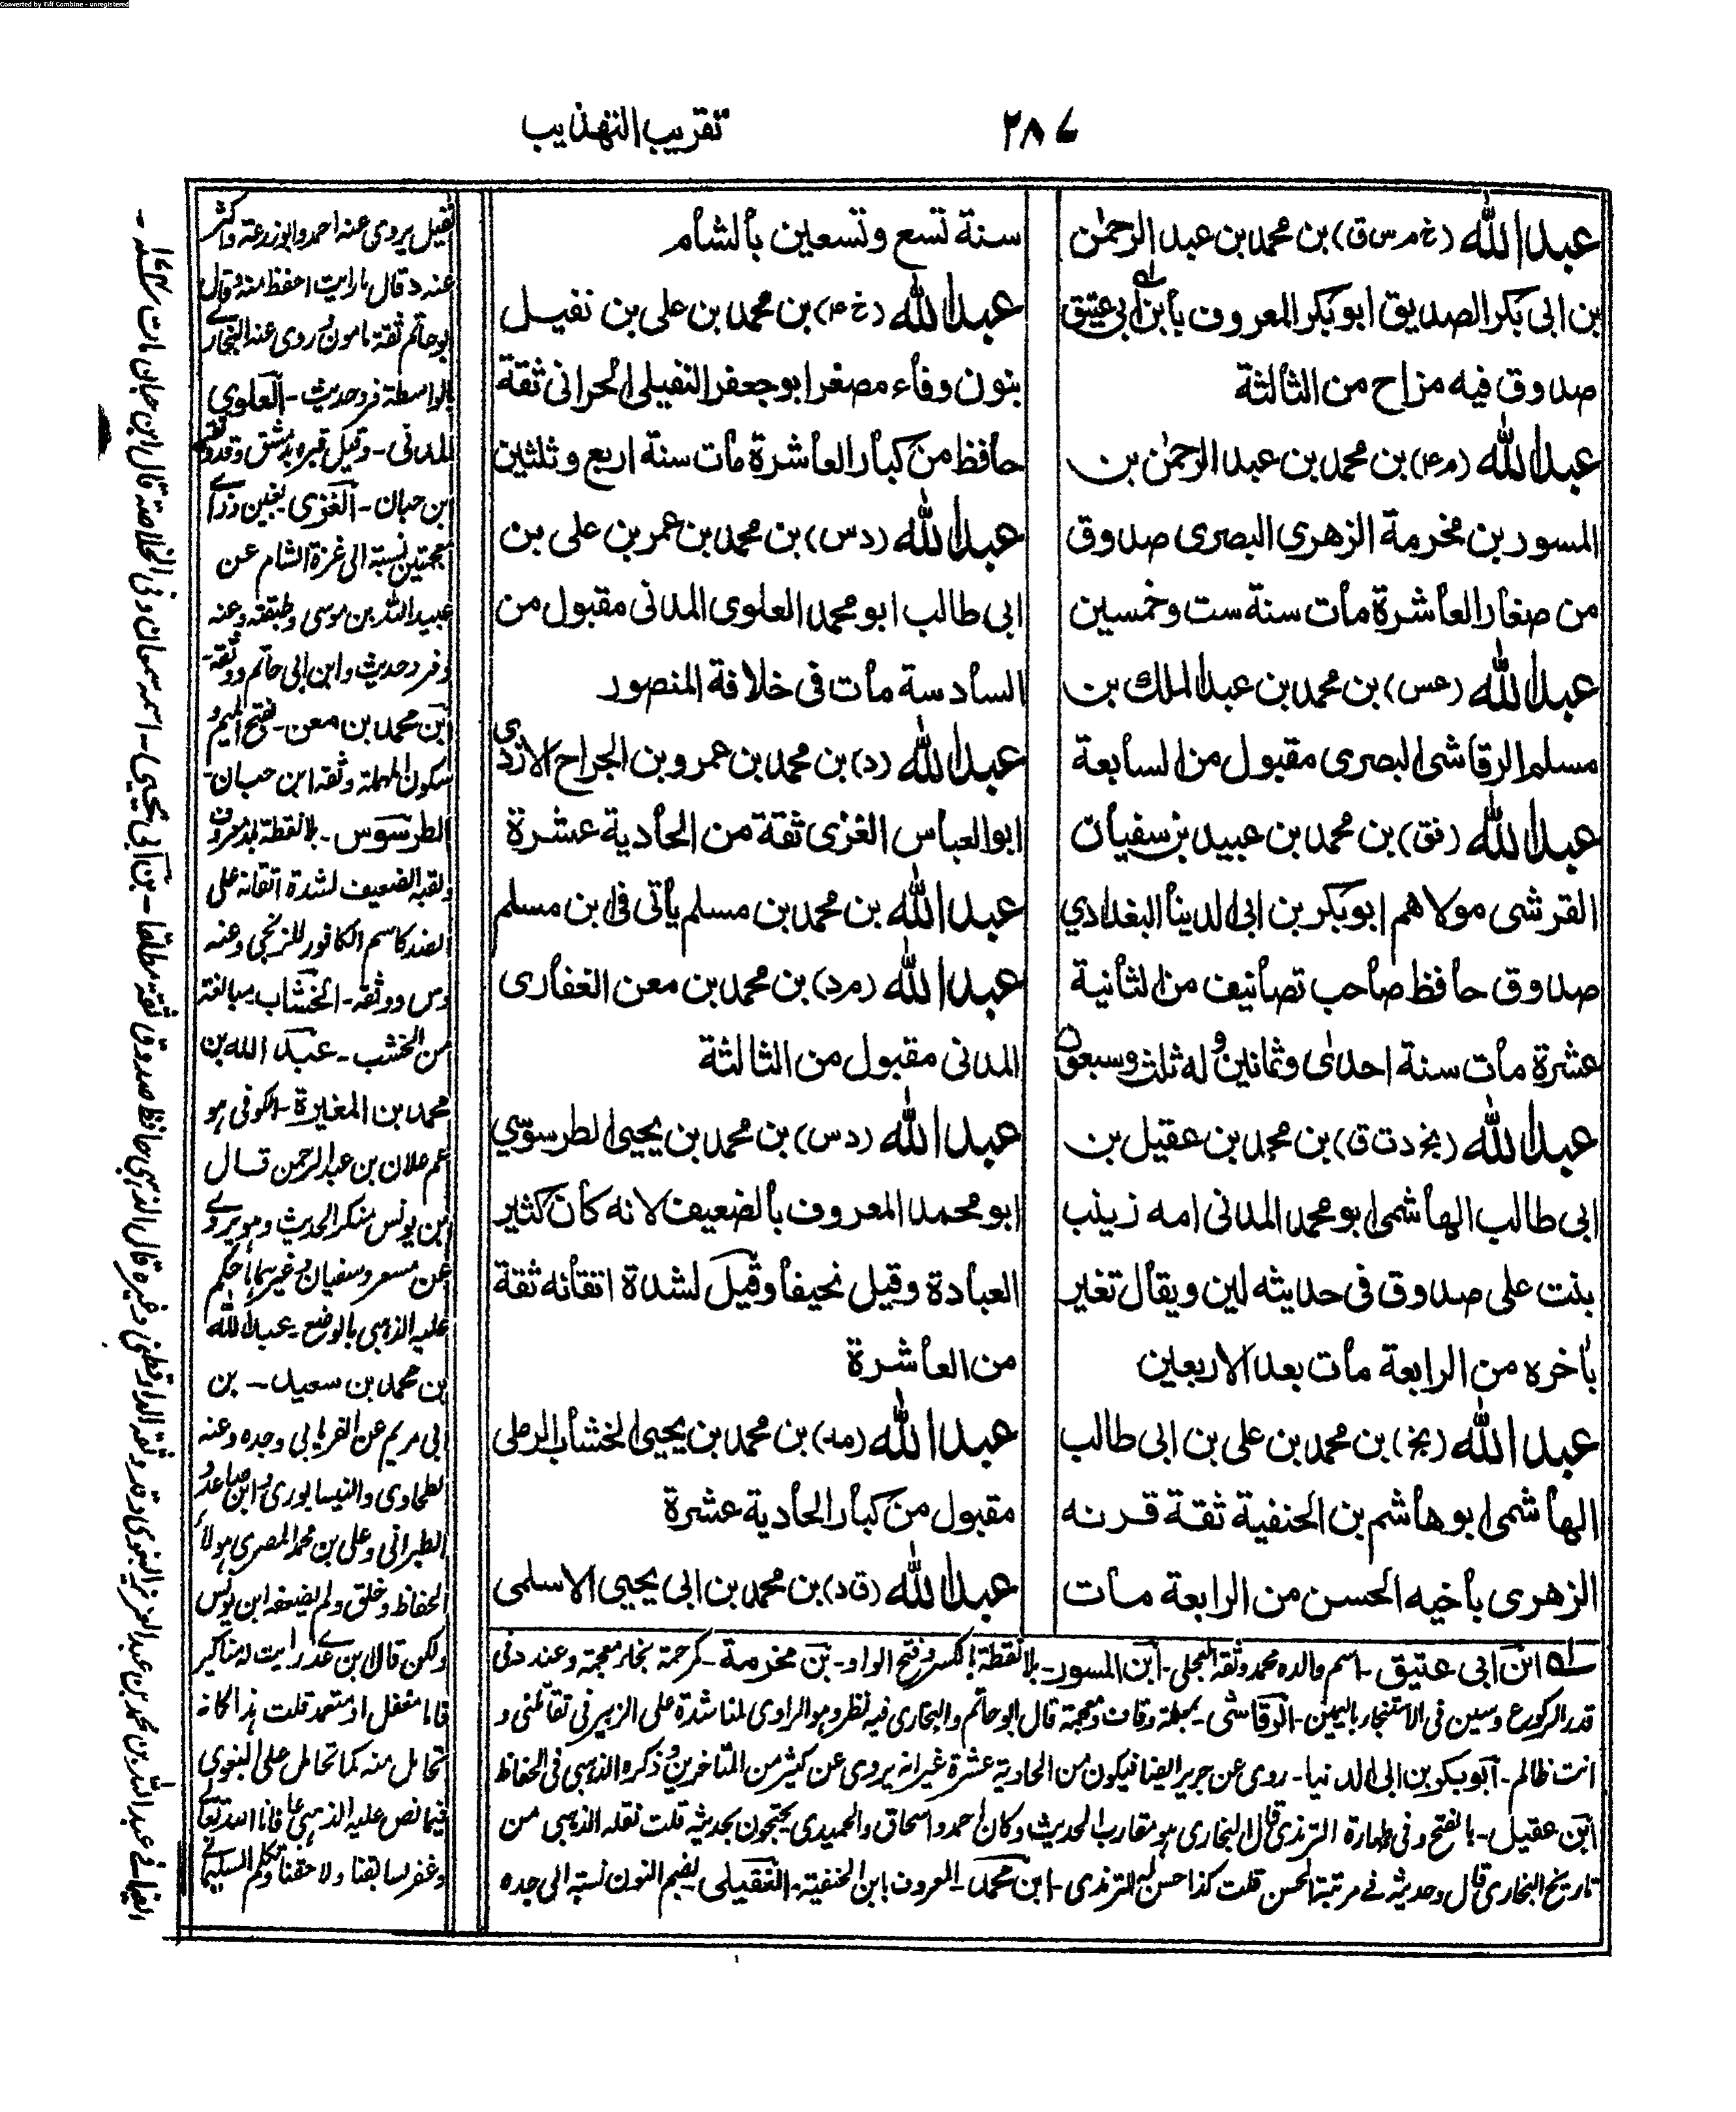 Converted by Tiff Combine - unregistered
٢٨٧
تقريب التهذيب
عبد الله (خ م س ق) بن محمد بن عبد الرحمٰن
بن ابى بكر الصديق ابو بكر المعروف بابن ابى عتيق
صدوق فيه مزاح من الثالثة
عبد الله (م ۴) بن محمد بن عبد الرحمٰن بن
المسور بن مخرمة الزهرى البصرى صدوق
من صغار العاشرة مات سنة ست وخمسين
عبد الله (عس) بن محمد بن عبد الملك بن
مسلم الرقاشى البصرى مقبول من السابعة
عبد الله (فق) بن محمد بن عبيد بن سفيان
القرشى مولاهم ابو بكر بن ابى الدنيا البغدادي
صدوق حافظ صاحب تصانيف من الثانية
عشرة مات سنة احدى وثمانين وله ثلث وسبعون
عبد الله (بخ د ت ق) بن محمد بن عقيل بن
ابى طالب الهاشمى ابو محمد المدنى امه زينب
بنت على صدوق فى حديثه لين ويقال تغير
باخره من الرابعة مات بعد الاربعين
عبد الله (بخ) بن محمد بن على بن ابى طالب
الهاشمى ابو هاشم بن الحنفية ثقة قرنه
الزهرى باخيه الحسن من الرابعة مات
سنة تسع وتسعين بالشام
عبد الله (خ ۴) بن محمد بن على بن نفيل
بنون وفاء مصغرا ابو جعفر النفيلى الحرانى ثقة
حافظ من كبار العاشرة مات سنة اربع وثلثين
عبد الله (د س) بن محمد بن عمر بن على بن
ابى طالب ابو محمد العلوى المدنى مقبول من
السادسة مات فى خلافة المنصور
عبد الله (د) بن محمد بن عمرو بن الجراح الازدى
ابو العباس الغزى ثقة من الحادية عشرة
عبد الله بن محمد بن مسلم يأتى فى ابن مسلم
عبد الله (م د) بن محمد بن معن الغفارى
المدنى مقبول من الثالثة
عبد الله (د س) بن محمد بن يحيى الطرسوسي
ابو محمد المعروف بالضعيف لانه كان كثير
العبادة وقيل نحيفا وقيل لشدة اتقانه ثقة
من العاشرة
عبد الله (مد) بن محمد بن يحيى الخشاب الرملى
مقبول من كبار الحادية عشرة
عبد الله (ق د) بن محمد بن ابى يحيى الاسلمى
ابن ابى عتيق - اسم والده محمد وثقه العجلى - ابن المسور - بلا نقطة بالكسر وفتح الواو - بن مخرمة - كمرحمة بخاء معجمة وعند دنى
قدر الركوع وسين فى الاستنجاء باليمين - الرقاشى - بمهملة وقاف ومعجمة قال ابو حاتم والبخارى فيه نظر وهو الراوى لمناشدة على الزبير فى تقاتلنى و
انت ظالم - ابو بكر بن ابى الدنيا - روى عن جرير ايضا فيكون من الحادية عشرة غير انه يروى عن كثير من المتاخرين وذكره الذهبى فى الحفاظ
ابن عقيل - بالفتح وفى طهارة الترمذى قال البخارى هو مقارب الحديث وكان احمد واسحاق والحميدى يحتجون بحديثه قلت نقله الذهبى من
تاريخ البخارى قال وحديثه فى مرتبة الحسن قلت كذا حسن له الترمذى - ابن محمد - المعروف بابن الحنفية - النفيلى بضم النون نسبة الى جده
نفيل يروى عنه احمد وابو زرعة واكثر
عنه د قال ما رايت احفظ منه وقال
ابو حاتم ثقة مامون روى عنه البخارى
بالواسطة فرد حديث - العلوي
المدنى - وقيل قبره بدمشق وقد وثقه
ابن حبان - الغزى بغين وزاء
معجمتين نسبة الى غزة الشام عن
عبيد الله بن موسى وطبقته وعنه
د فرد حديث وابن ابى حاتم ووثقه -
ابن محمد بن معن - بفتح الميم و
سكون المهملة وثقه ابن حبان -
الطرسوسى - بلا نقطة بلد معروف
ولقبه الضعيف لشدة اتقانه على
الضد كاسم الكافور للزنجى وعنه
د س ووثقه - الخشاب مبالغة
من الخشب - عبد الله بن
محمد بن المغيرة - الكوفى هو
عم علان بن عبد الرحمن قال
ابن يونس منكر الحديث وهو يروى
عن مسعر وسفيان وغيرهما حكم
عليه الذهبى بالوضع - عبد الله
بن محمد بن سعيد - بن
ابى مريم عن الفريابى وجده وعنه
الطحاوى والنيسابورى وابن صاعد و
الطبرانى وعلى بن محمد المصرى هؤلاء
الحفاظ وخلق ولم يضعفه ابن يونس
ولكن قال ابن عدى رايت له مناكير
فاما مغفل او متعمد قلت هذا كانه
تحامل منه كما تحامل على البغوى
فيما نص عليه الذهبى
وغفر لسابقنا ولاحقنا
بن ابى يحيى - اسمه سمعان وفى الخلاصة قال ابن حبان مات